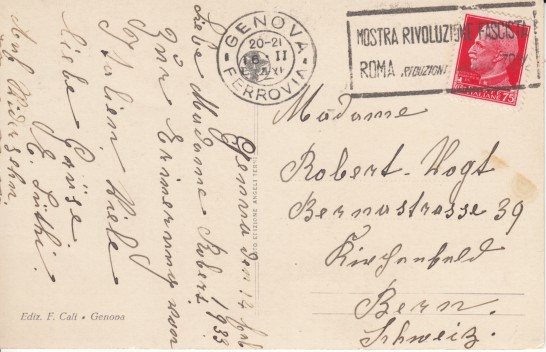 GENOVA
20-21
16 II
FERROVIA
MOSTRA RIVOLUZIONE FASCISTA
ROMA RIDUZIONI
75
Genua den 14 Feb
1933
Liebe Madame Robert.
Zur Erinnerung von
Italien Viele
liebe Grüsse
E. Lüthi.
Auf Wiedersehn
Madame
Robert-Vogt
Bernastrasse 39
Kirchenfeld
Bern.
Schweiz.
Ediz. F. Calì • Genova